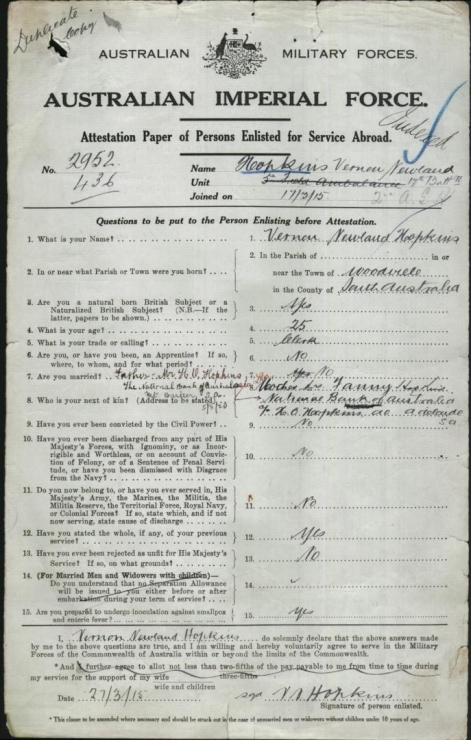 Duplicate
Copy
AUSTRALIAN MILITARY FORCES.
AUSTRALIAN IMPERIAL FORCE.
Attestation Paper of Persons Enlisted for Service Abroad.
Indexed
No. 2952
436
Name Hopkins Vernon Newland
Unit 5th Field Ambulance
Joined on 17/3/15
Questions to be put to the Person Enlisting before Attestation.
1. What is your Name?
1. Vernon Newland Hopkins
2. In or near what Parish or Town were you born?
2. In the Parish of in or
near the Town of Woodville
in the County of South Australia
3. Are you a natural born British Subject or a
Naturalized British Subject? (N.B.—If the
latter, papers to be shown.)
3. Yes
4. What is your age?
4. 25
5. What is your trade or calling?
5. Clerk
6. Are you, or have you been, an Apprentice? If so,
where, to whom, and for what period?
6. No
7. Are you married?
7. No
Father Mr H.O. Hopkins
The National Bank of Australasia
8. Who is your next of kin? (Address to be stated)
Mother Fanny Hopkins
National Bank of Australia
Adelaide
S A
9. Have you ever been convicted by the Civil Power?
9. No
10. Have you ever been discharged from any part of His
Majesty's Forces, with Ignominy, or as Incor-
rigible and Worthless, or on account of Conviction
of Felony, or of a Sentence of Penal Servi-
tude, or have you been dismissed with Disgrace
from the Navy?
10. No
11. Do you now belong to, or have you ever served in, His
Majesty's Army, the Marines, the Militia, the
Militia Reserve, the Territorial Force, Royal Navy,
or Colonial Forces? If so, state which, and if not
now serving, state cause of discharge
11. No
12. Have you stated the whole, if any, of your previous
service?
12. Yes
13. Have you ever been rejected as unfit for His Majesty's
Service? If so, on what grounds?
13. No
14. (For Married Men and Widowers with children)—
Do you understand that no Separation Allowance
will be issued to you either before or after
embarkation during your term of service?
14.
15. Are you prepared to undergo inoculation against smallpox
and enteric fever?
15. Yes
I, Vernon Newland Hopkins do solemnly declare that the above answers made
by me to the above questions are true, and I am willing and hereby voluntarily agree to serve in the Military
Forces of the Commonwealth of Australia within or beyond the limits of the Commonwealth.
*And I further agree to allot not less than two-fifths of the pay payable to me from time to time
three-fifths
during my service for the support of my wife
wife and children
Date 27/3/15
sgd V N Hopkins
Signature of person enlisted.
* This clause to be amended where necessary and should be struck out in the case of unmarried men or widowers without children under 18 years of age.